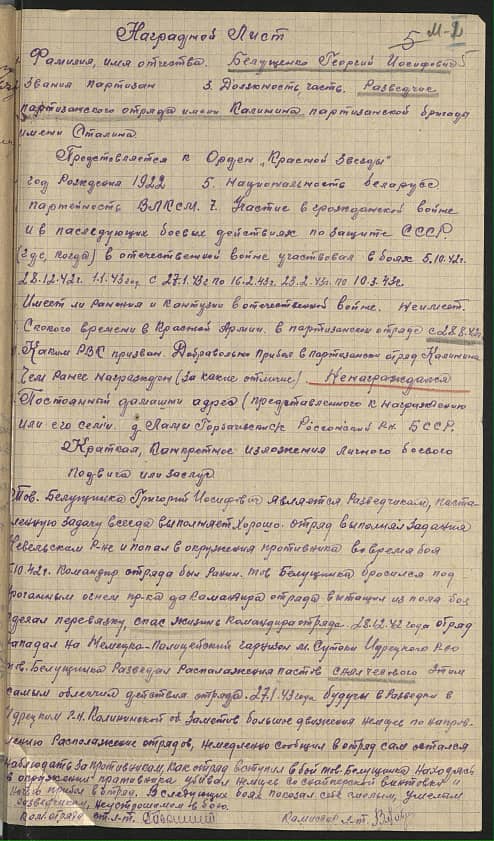 М-2
5
Наградной Лист
Фамилия, имя отчества. Белущенко Георгий Иосифович
Звания партизан 3. Должность часть. Разведчис
партизанского отряда имени Калинина партизанской бригада
имени Сталина
Предствляется к Орден „Красной Звезды"
год Рождения 1922 5. Национальность беларусс
партейность ВЛКСМ. 7. Участие в гражданской войне
и в паследующих боевых действиях по защите СССР.
(где, когда) в отечественной войне участвовал в боях 5.10.42г.
28.12.42г. 1.1.43год с 27.1.43г по 16.2.43г. 23.2.43г. по 10.3.43г.
Имеет ли ранения и кантузии в отечественной войне. Неимеет.
Скокого времени в Красной Армии. в партизанском отряде с 28.8.42г.
Каким РВС призван. Добравольно прибыл в партизански отряд Калинина
Чем Ранее награжден (за какие отличие) Ненаграждался
Постоянный дамашни адрес (представленного к награждению
или его семи. д. Ламы Горбачевский с/с Россонский р-н. БССР.
Краткая, Канкретное изложения личного боевого
Подвига или заслуг
Тов. Белущинка Григорий Иосифович является Разведчикам, поста-
ленную задачу всегда выполняет хорошо. отряд выполнял задация
Невельскам Р-не и попал в окружения противника вовремя боя
5.10.42г. Командир отряда был Ранин. тов Белущинка бросился под
ураганным огнем пр-ка да Командира отряда вытащил из поля боя
сделал перевязку, спас жизнь Командира отряда. 28.12.42 года отряд
нападал на Немецка-Полицейский гарнизон м. Сутоки Идрецкого Р-но
тов. Белущинка Разведал Распалажения пастов Этим
самым облекчил действия отряда. 27.1.43 года будучи в Разведки в
Идрецким Р-н. Заметов большие движения немцев по направ-
лению Располажение отрядов, немедленно сообщил в отряд сам остался
наблюдать за противником, как отряд вступил в бой тов. Белущинка находясь
в окружении противника убивал немцев со снайперской винтовки и
прибыл в отряд. В следующих боях показал себя смелым, умелым
разведчикам, неустрошимом в бою.
Ком. отряда ст. л-т. Комиссар л-т.